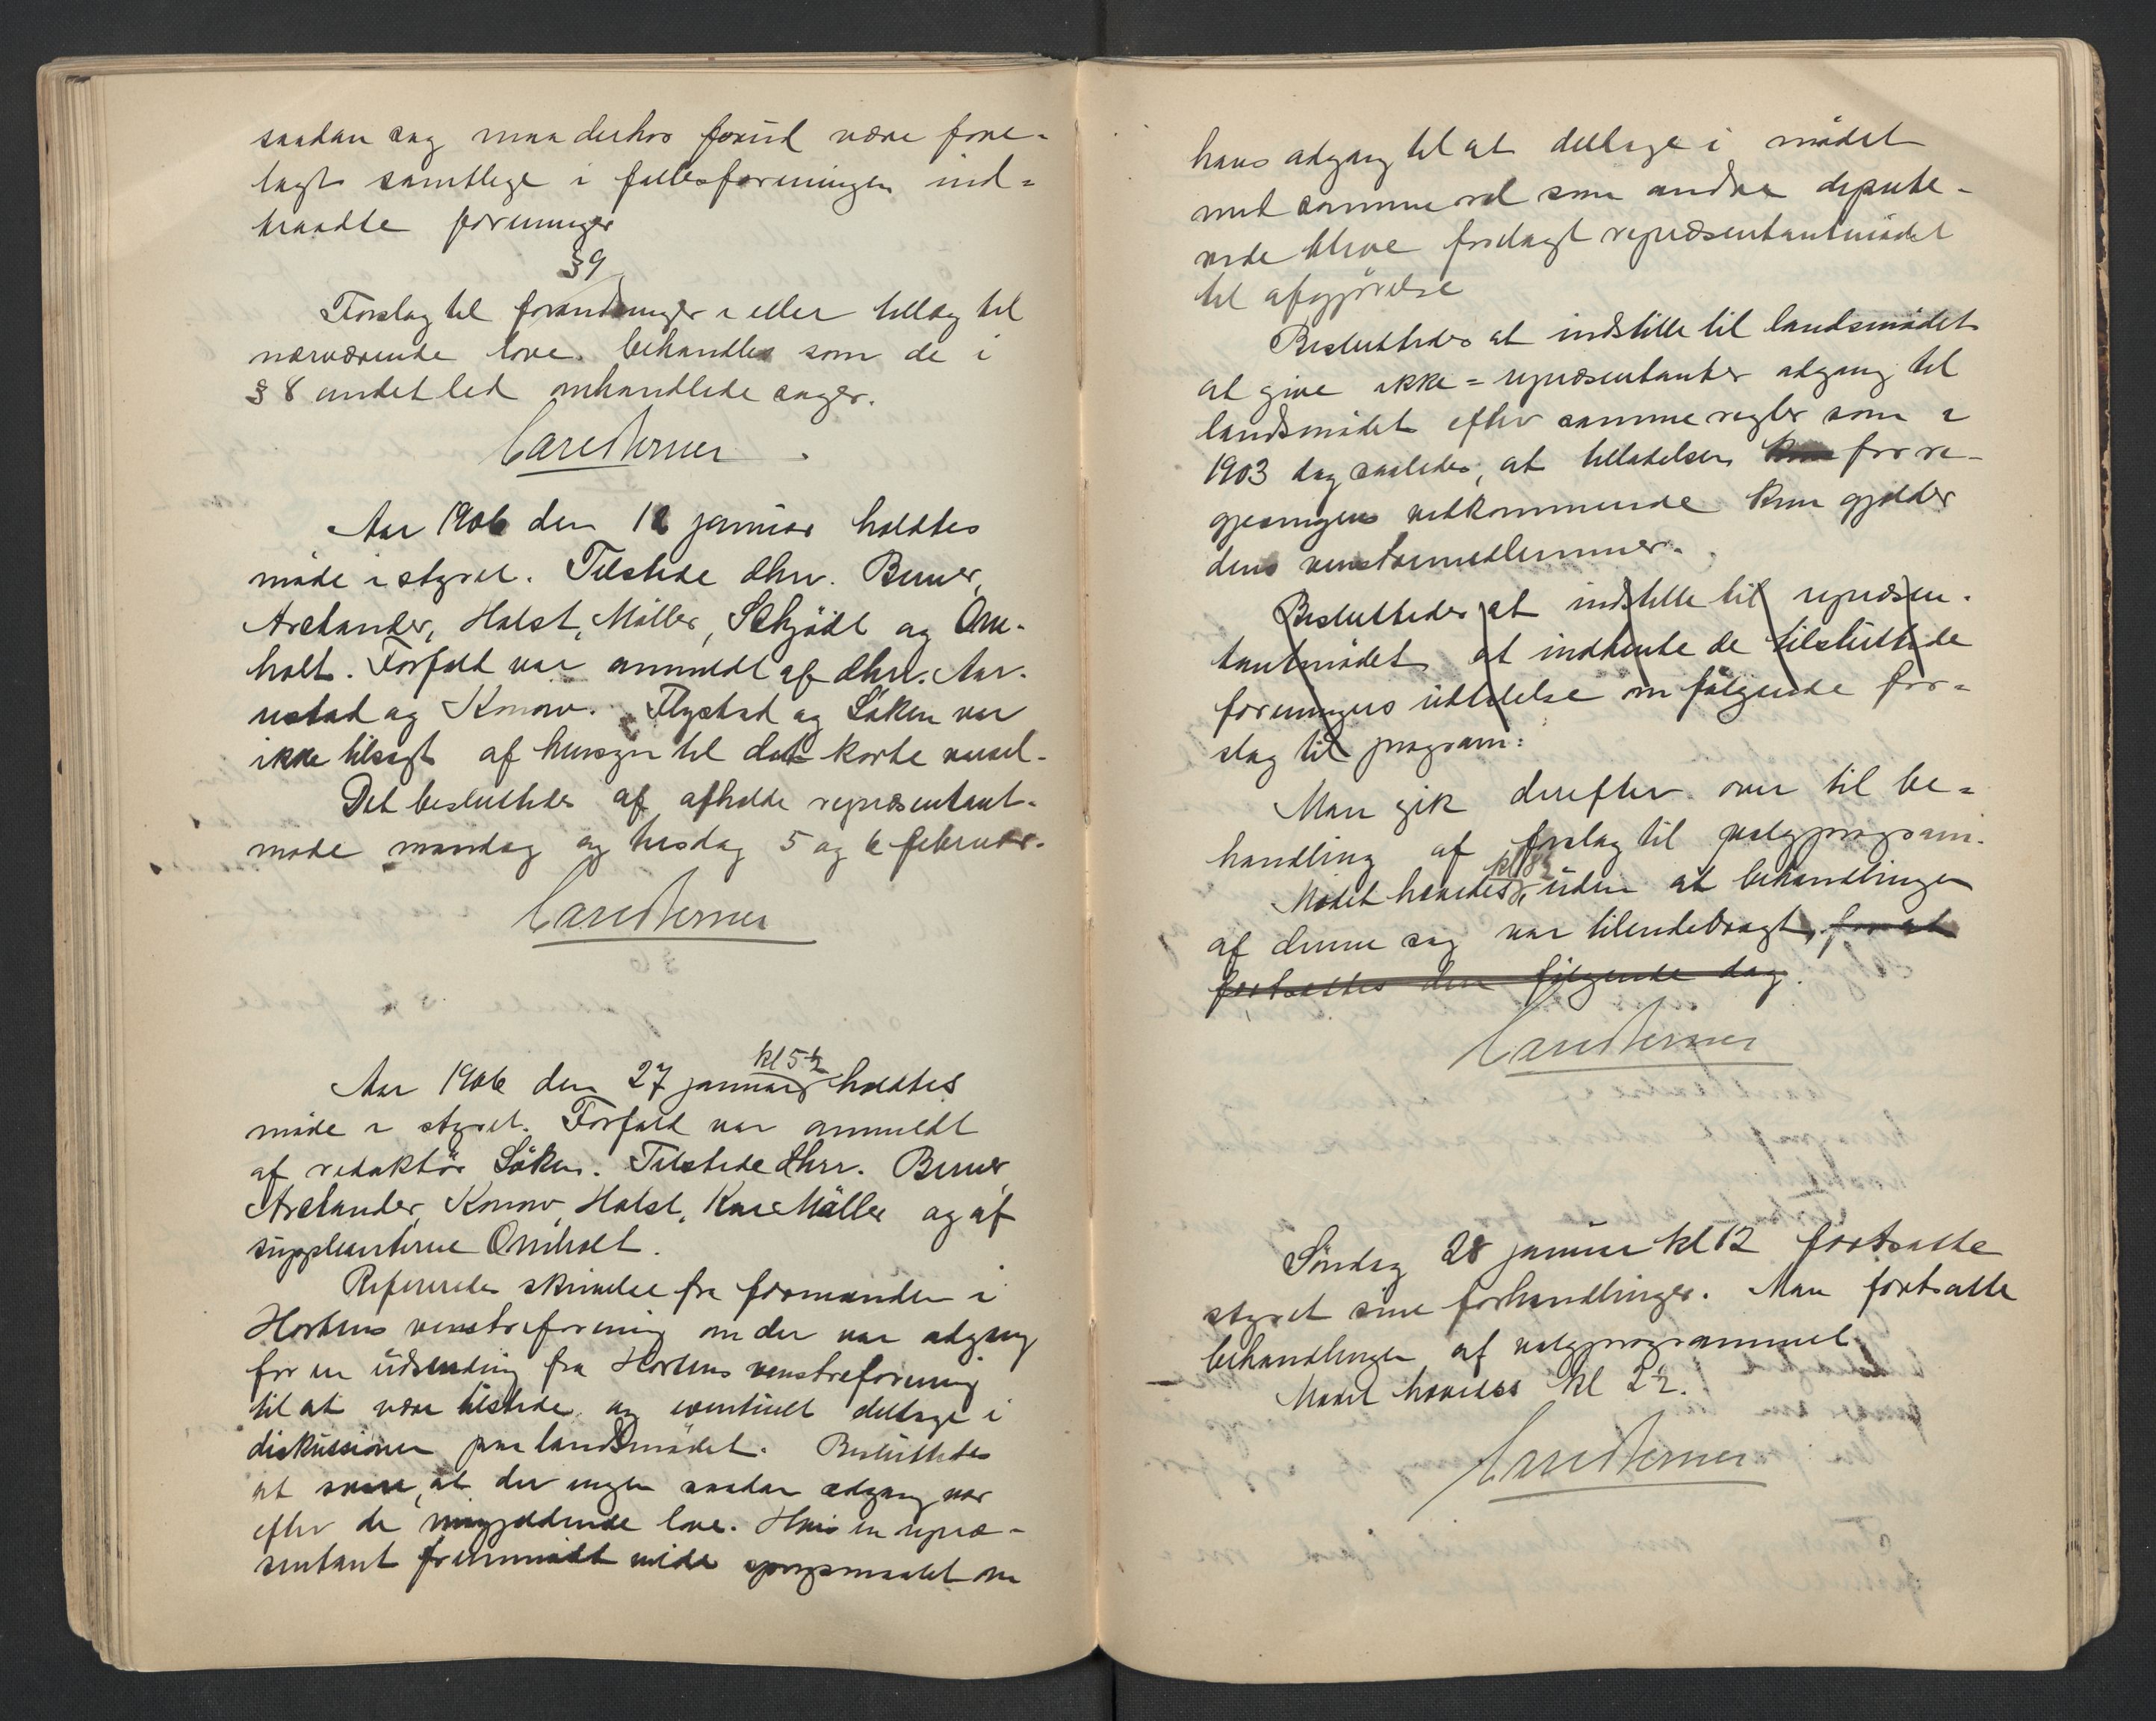 saadan sag maa derhos forud være fore-
lagt samtlige i fællesforeningen ind=
traadte foreninger
§ 9
Forslag til forandringer i eller tillæg til
nærværende love behandles som de i
§ 8 andet led omhandlede sager.
Carl Berner
Aar 1906 den 12 januar holdtes
møde i styret. Tilstede dhrr. Berner,
Arctander, Holst, Møller, Schjødt og Om-
holt. Forfald var anmeldt af dhrr. Aar-
restad og Konow. Flystad og Løken var
ikke tilsagt af hensyn til det korte varsel.
Det besluttedes af afholde repræsentant-
møde mandag og tirsdag 5 og 6 februar.
Carl Berner
kl 5½
Aar 1906 den 27 januar holdtes
møde i styret. Forfald var anmeldt
af redaktør Løken. Tilstede dhrr. Berner,
Arctander, Konow, Holst, Møller og af
suppleanterne Omholt.
Refereredes skrivelse fra formanden i
Hortens venstreforening om der var adgang
for en udsending fra Hortens venstreforening
til at være tilstede og eventuelt deltage i
diskussionen paa landsmødet. Besluttedes
at svare, at der ingen saadan adgang var
efter de nugjældende love. Hvis en repræ-
sentant fremmødt vilde spørgsmaalet om
hans adgang til at deltage i mødet
med samme ret som andre depute-
rede blive forelagt repræsentantmødet
til afgjørelse
Besluttedes at indstille til landsmødet
at give ikke=repræsentanter adgang til
landsmødet efter samme regler som i
1903 dog saaledes, at tilladelsen for re-
gjeringens vedkommende kun gjælder
dens venstremedlemmer.
Besluttedes at indstille til repræsen-
tantmødet at indhente de tilsluttede
foreningers udtalelse om følgende for=
slag til program:
Man gik derefter over til be=
handling af forslag til valgprogram.
kl 8½
Mødet hævedes, uden at behandlingen
af denne sag var tilendebragt, for at
fortsættes den følgende dag.
Carl Berner
Søndag 28 januar kl 12 fortsatte
styret sine forhandlinger. Man fortsatte
behandlingen af valgprogrammet
Mødet hævedes kl 2½.
Carl Berner